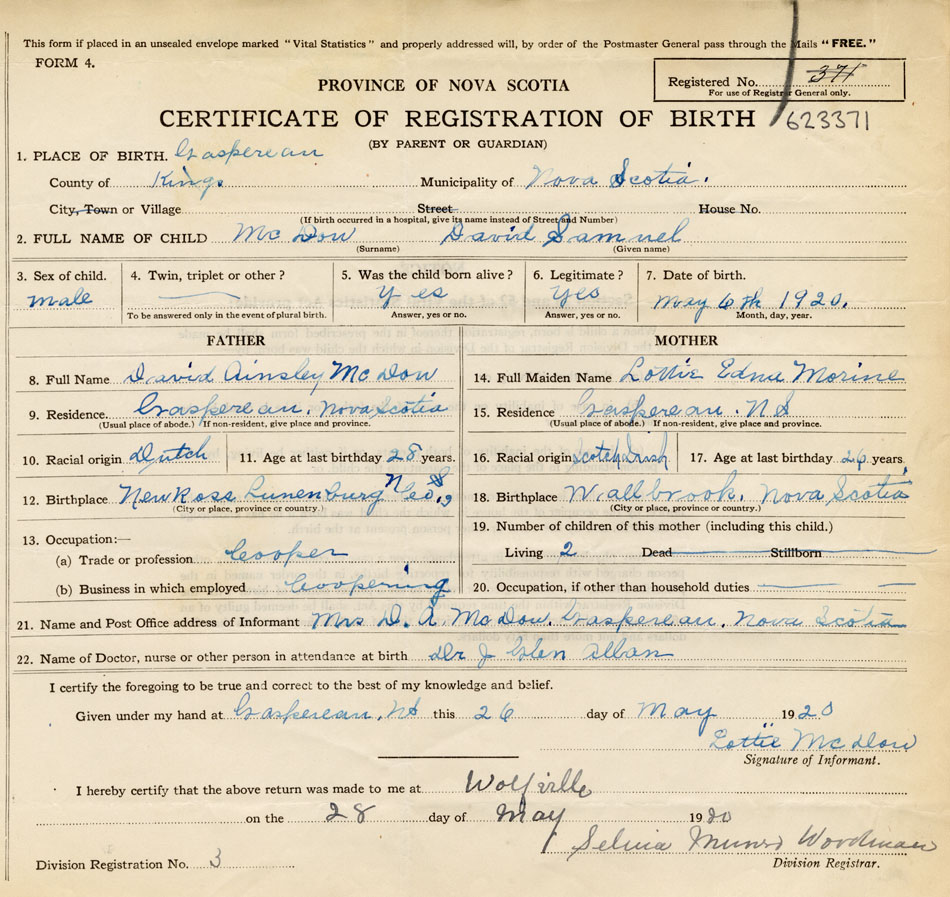 This form if placed in an unsealed envelope marked "Vital Statistics" and properly addressed will, by order of the Postmaster General pass through the Mails "FREE."
FORM 4.
PROVINCE OF NOVA SCOTIA
Registered No. 371
For use of Registrar General only.
CERTIFICATE OF REGISTRATION OF BIRTH
623371
(BY PARENT OR GUARDIAN)
1. PLACE OF BIRTH. Gaspereau
County of Kings Municipality of Nova Scotia.
City, Town or Village Street House No.
(If birth occurred in a hospital, give its name instead of Street and Number)
2. FULL NAME OF CHILD McDow David Samuel
(Surname) (Given name)
3. Sex of child. 4. Twin, triplet or other? 5. Was the child born alive? 6. Legitimate? 7. Date of birth.
male Yes Yes May 6th 1920.
To be answered only in the event of plural birth. Answer, yes or no. Answer, yes or no. Month, day, year.
FATHER MOTHER
8. Full Name David Ainsley McDow 14. Full Maiden Name Lottie Edna Morine
9. Residence. Gaspereau. Nova Scotia 15. Residence Gaspereau. N S
(Usual place of abode.) If non-resident, give place and province. (Usual place of abode.) If non-resident, give place and province.
10. Racial origin Dutch 11. Age at last birthday 28 years. 16. Racial origin Scotch Irish 17. Age at last birthday 26 years.
12. Birthplace New Ross Lunenburg Co. N S 18. Birthplace Wallbrook. Nova Scotia
(City or place, province or country.) (City or place, province or country.)
19. Number of children of this mother (including this child.)
13. Occupation:—
(a) Trade or profession Cooper Living 2 Dead Stillborn
(b) Business in which employed Coopering 20. Occupation, if other than household duties
21. Name and Post Office address of Informant Mrs D. A. McDow. Gaspereau. Nova Scotia
22. Name of Doctor, nurse or other person in attendance at birth Dr J Glen Allan
I certify the foregoing to be true and correct to the best of my knowledge and belief.
Given under my hand at Gaspereau. NS this 26 day of May 1920
Lottie McDow
Signature of Informant.
I hereby certify that the above return was made to me at Wolfville
on the 28 day of May 1920
Selina Munro Woodman
Division Registration No. 3 Division Registrar.